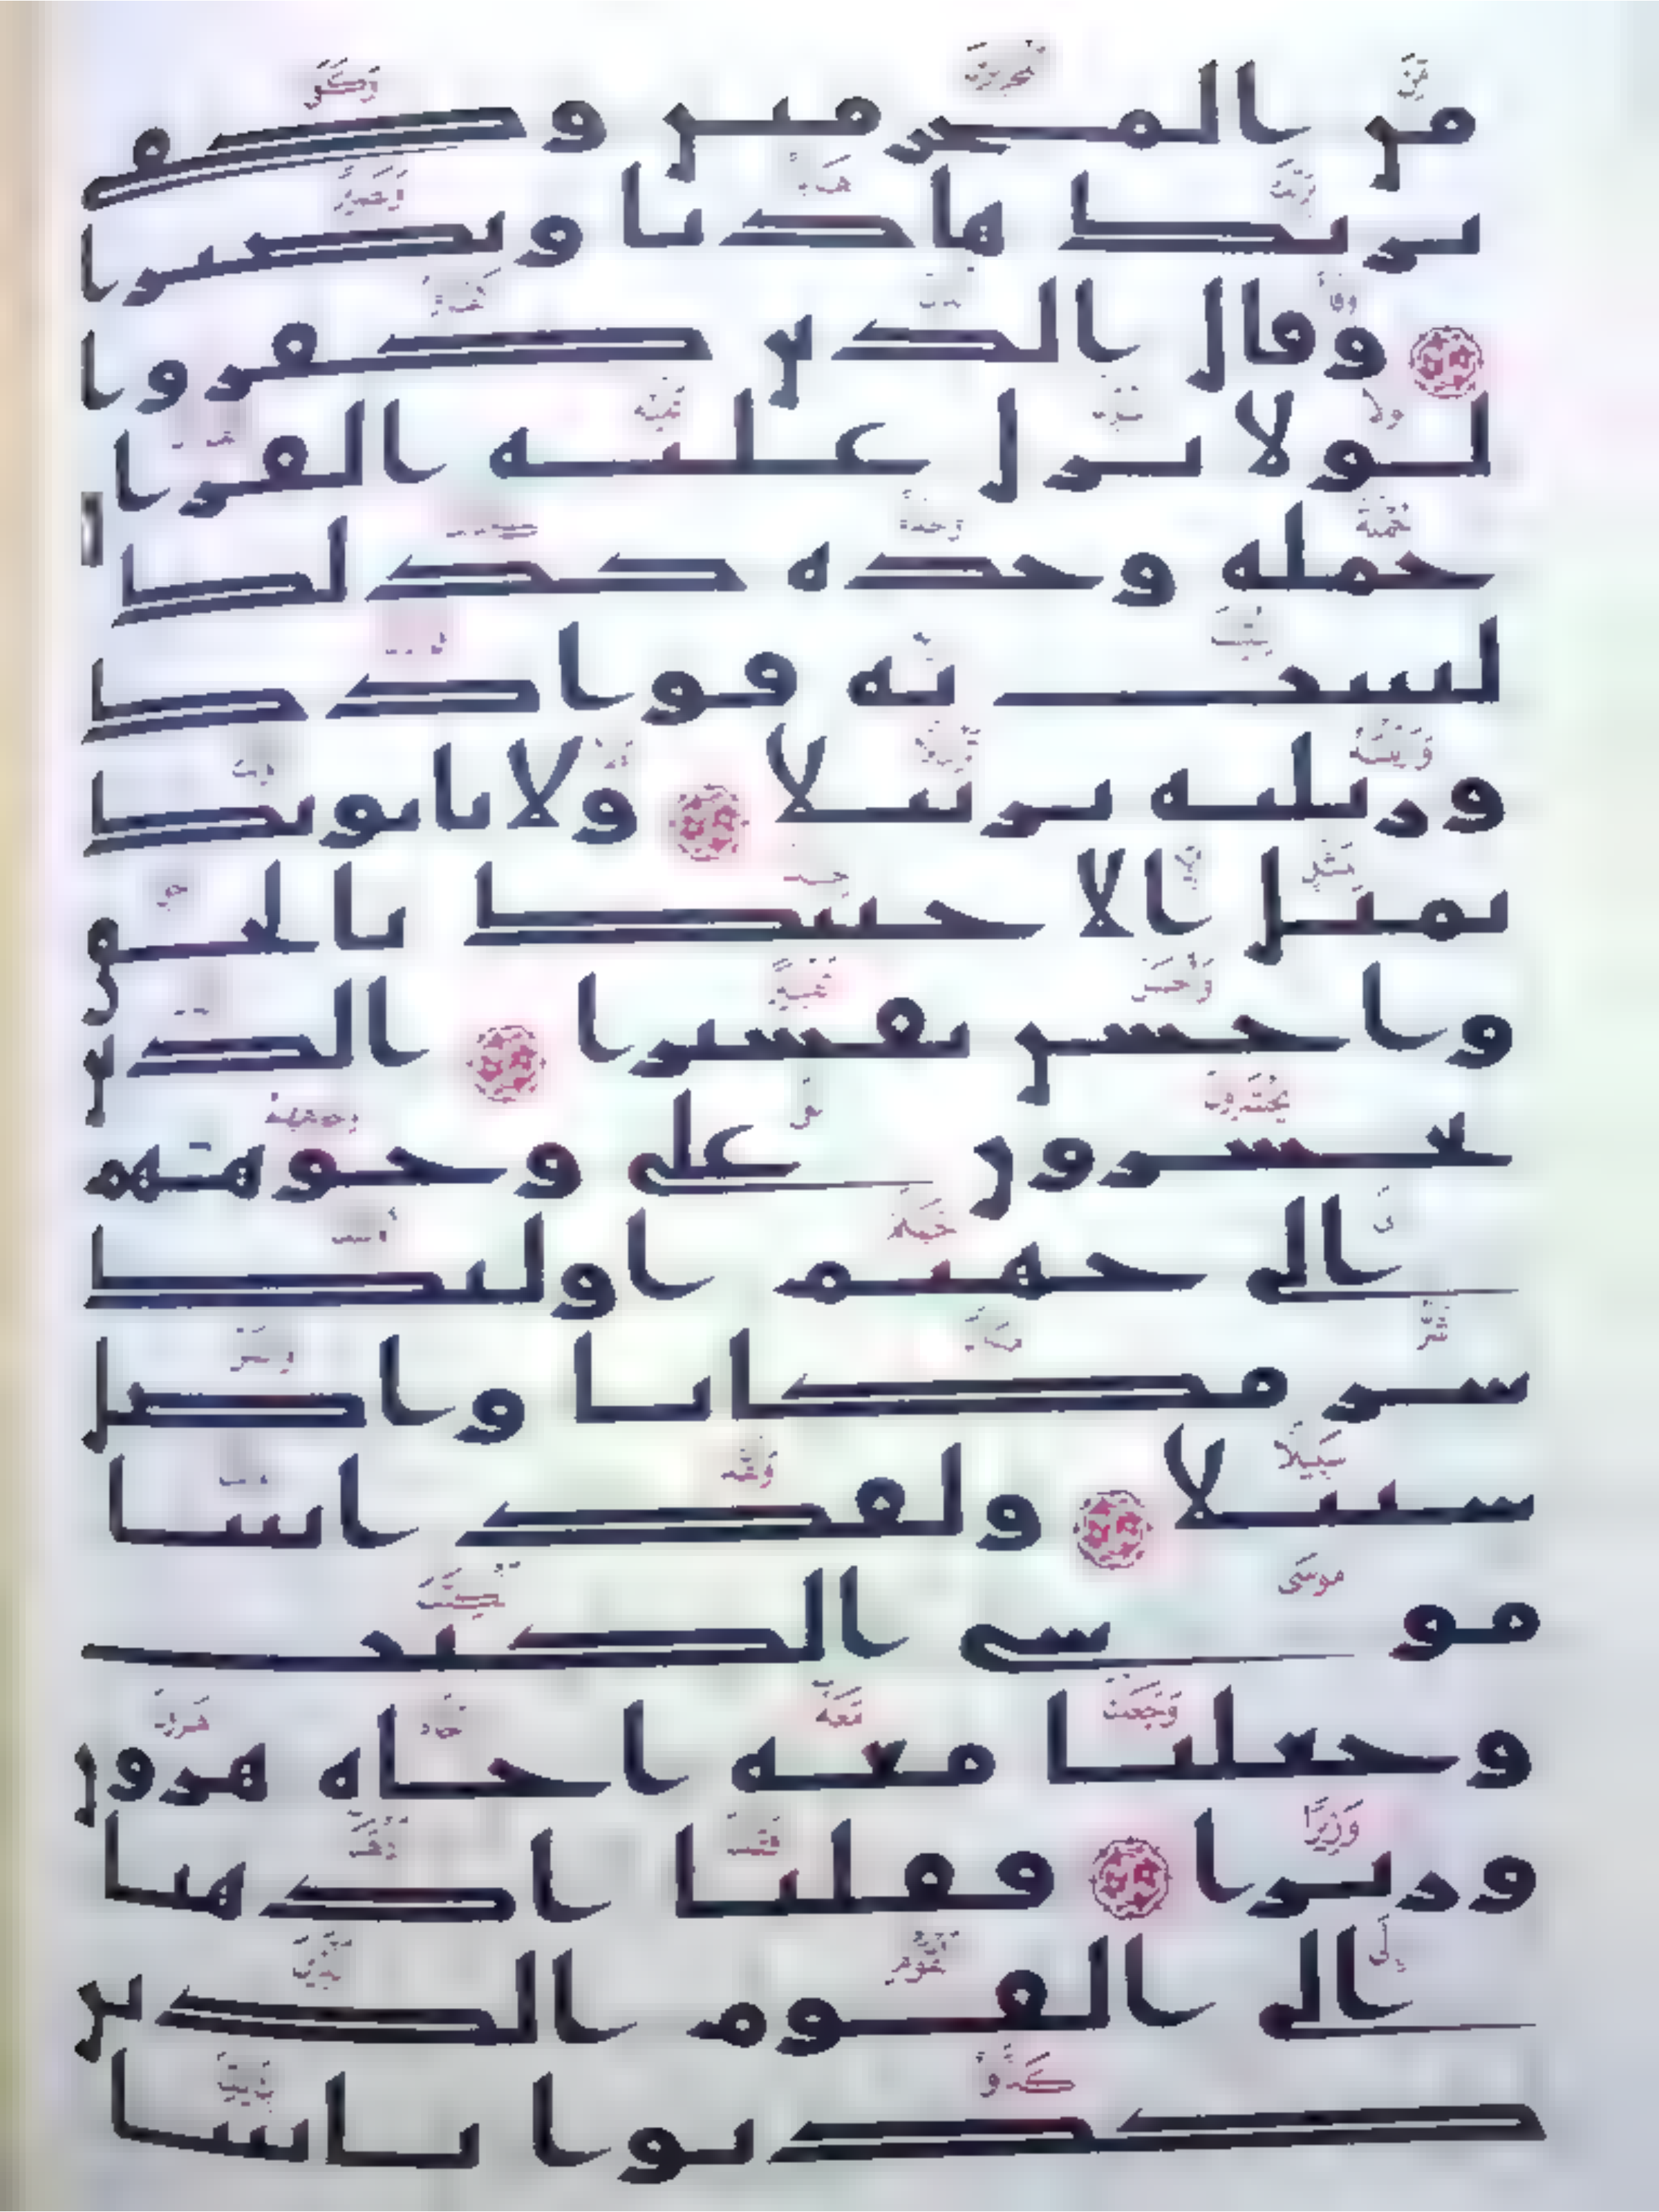 من المجرمين وكفى
بربك هاديا ونصيرا
وقال الذين كفروا
لولا نزل عليه القران
جملة وحدة كذلك
لنثبت به فوادك
ورتلنه ترتيلا ولا ياتونك
بمثل الا جئنك بالحق
واحسن تفسيرا الذين
يحشرون على وجوههم
الى جهنم اولئك
شر مكانا واضل
سبيلا ولقد اتينا
موسى الكتب
وجعلنا معه اخاه هرون
وزيرا فقلنا اذهبا
الى القوم الذين
كذبوا بايتنا